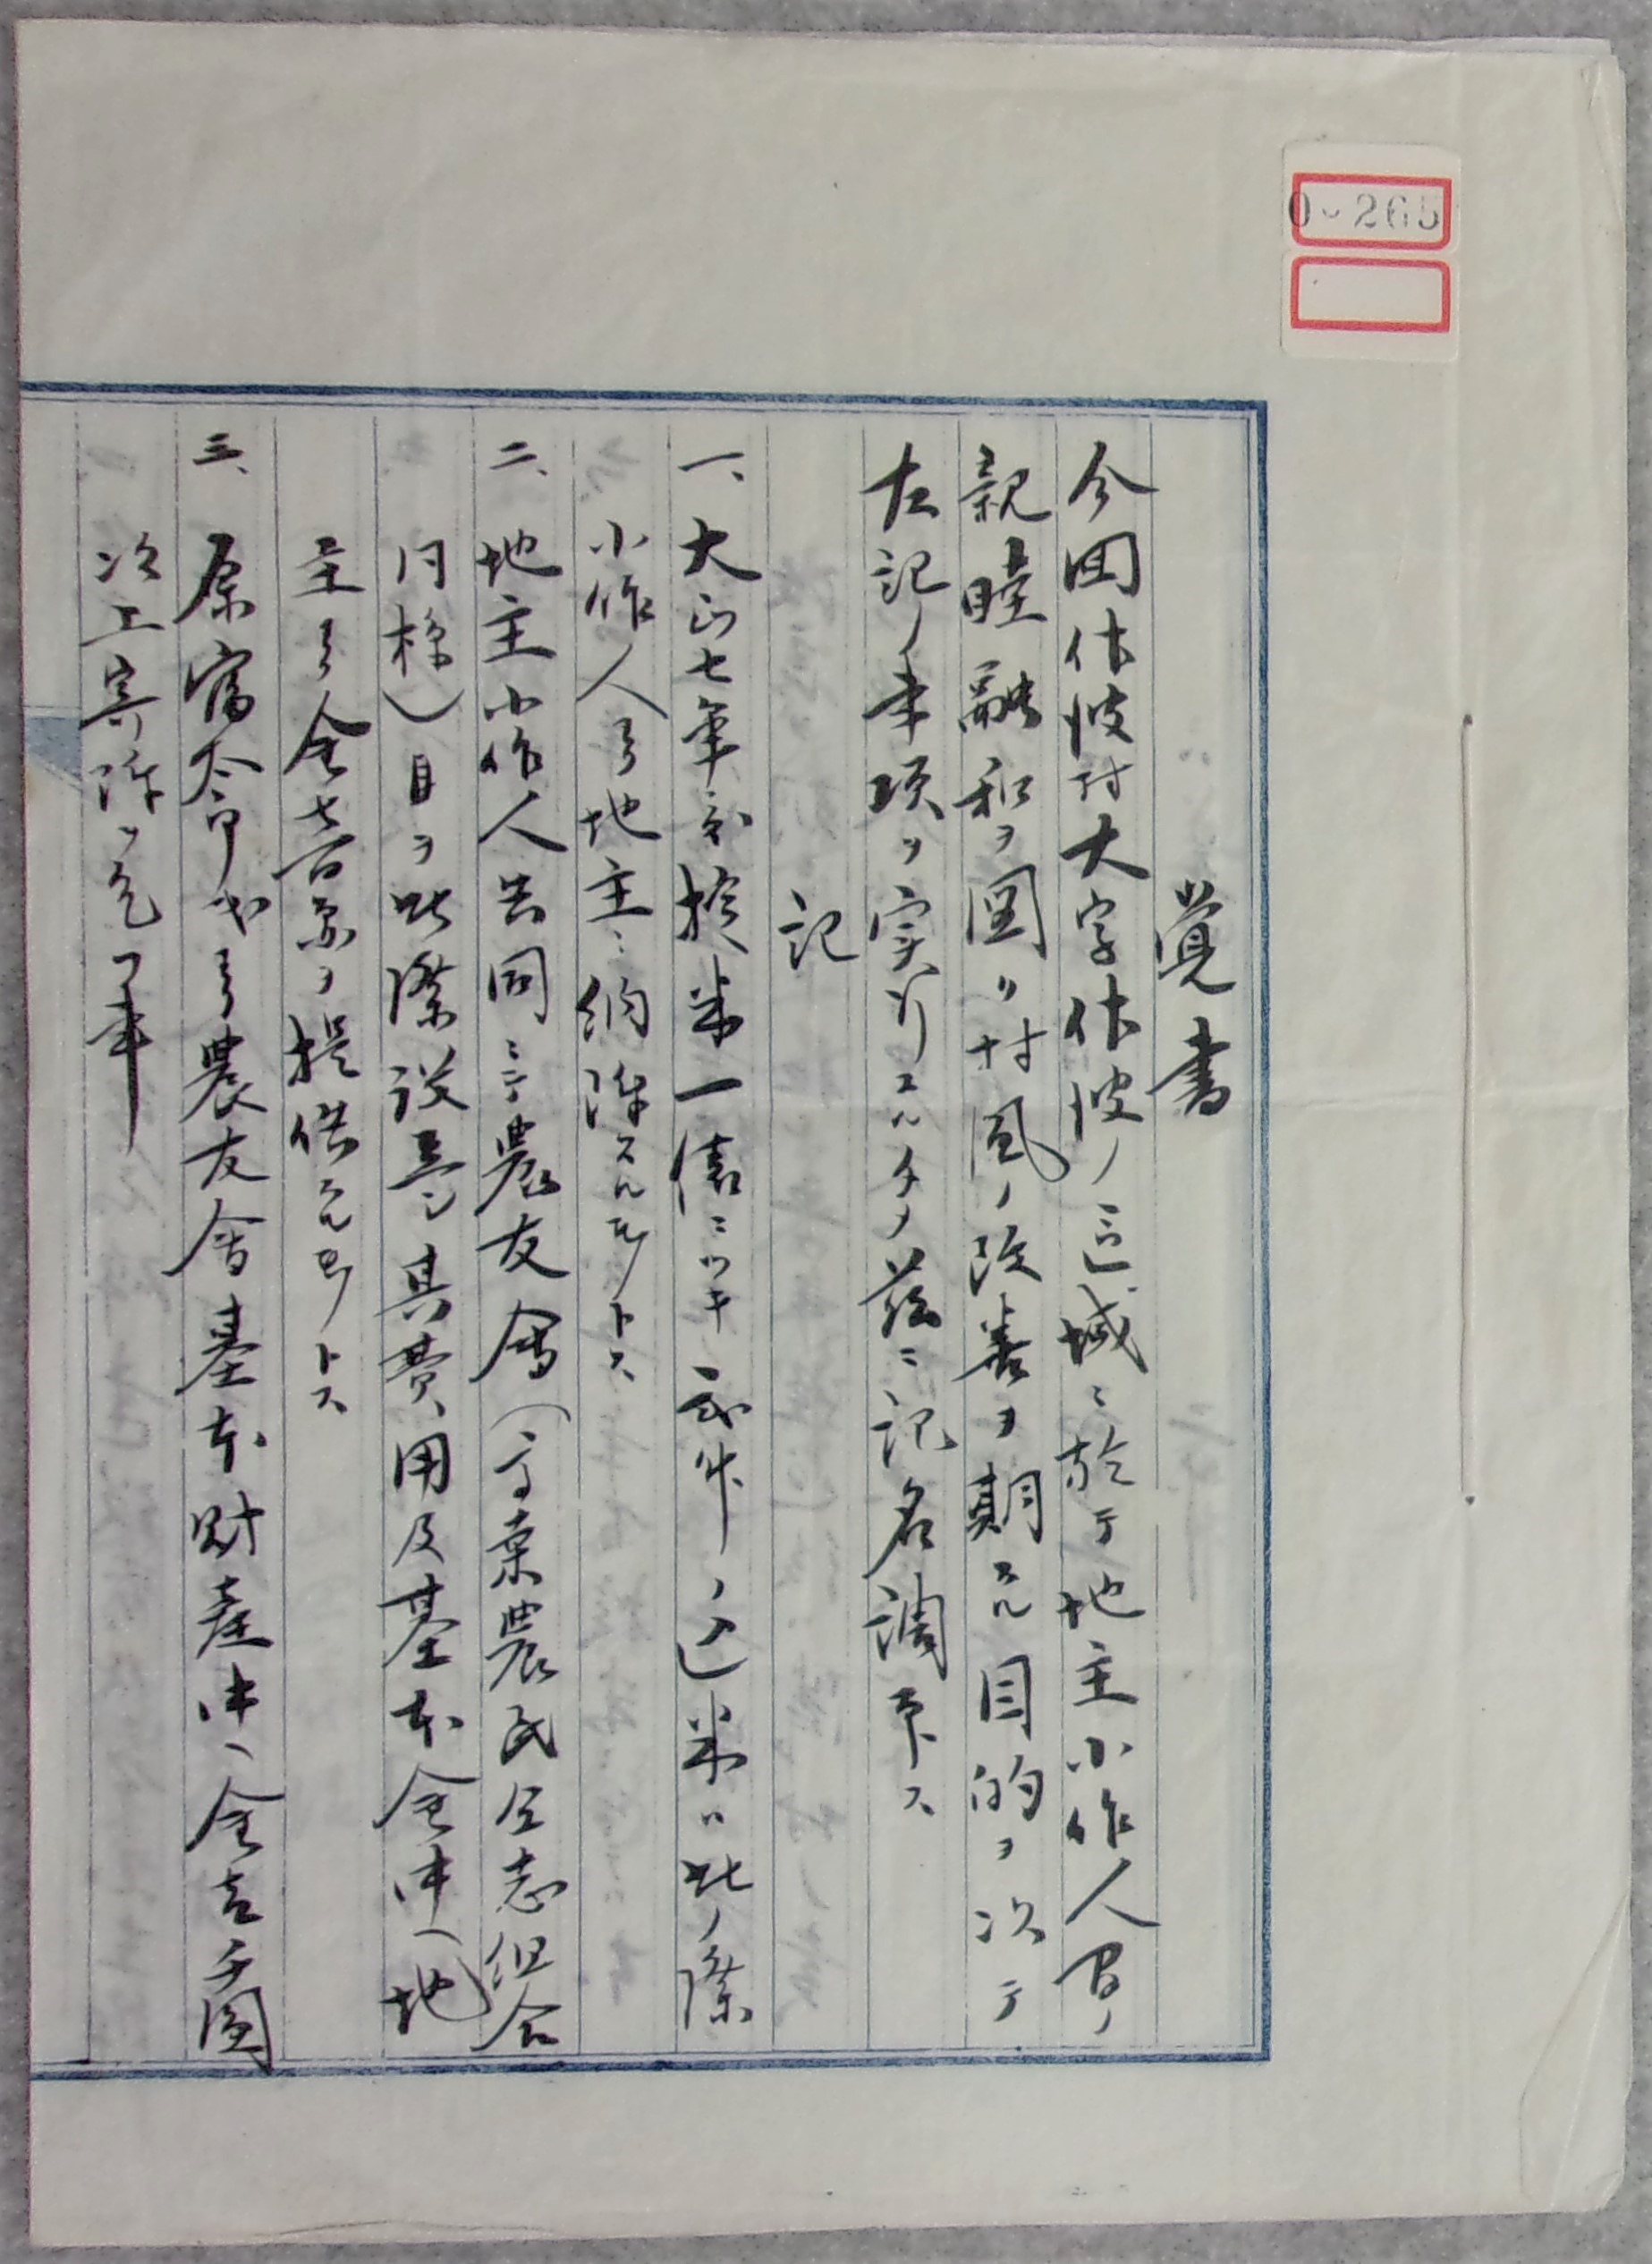 0-265
覚書
今回伎波村大字伎波ノ区域ニ於テ地主小作人間ノ
親睦融和ヲ図リ村風ノ改善ヲ期スル目的ヲ以テ
左記ノ事項ヲ実行スル為メ茲ニ記名調印ス
記
一、大正七年分掟米一俵ニツキ弐升ノ込米ハ此ノ際
小作人ヨリ地主ニ納附スルモノトス
二、地主小作人共同ニテ農友会(
農民同志組合
同様)目ヲ此際設置シ其費用及基本金中ヘ地
主ヨリ金七百円ヲ提供スルモノトス
三、原富
ヨリ農友会基本財産中ヘ金壱千円
以上寄附ヲ乞フ事